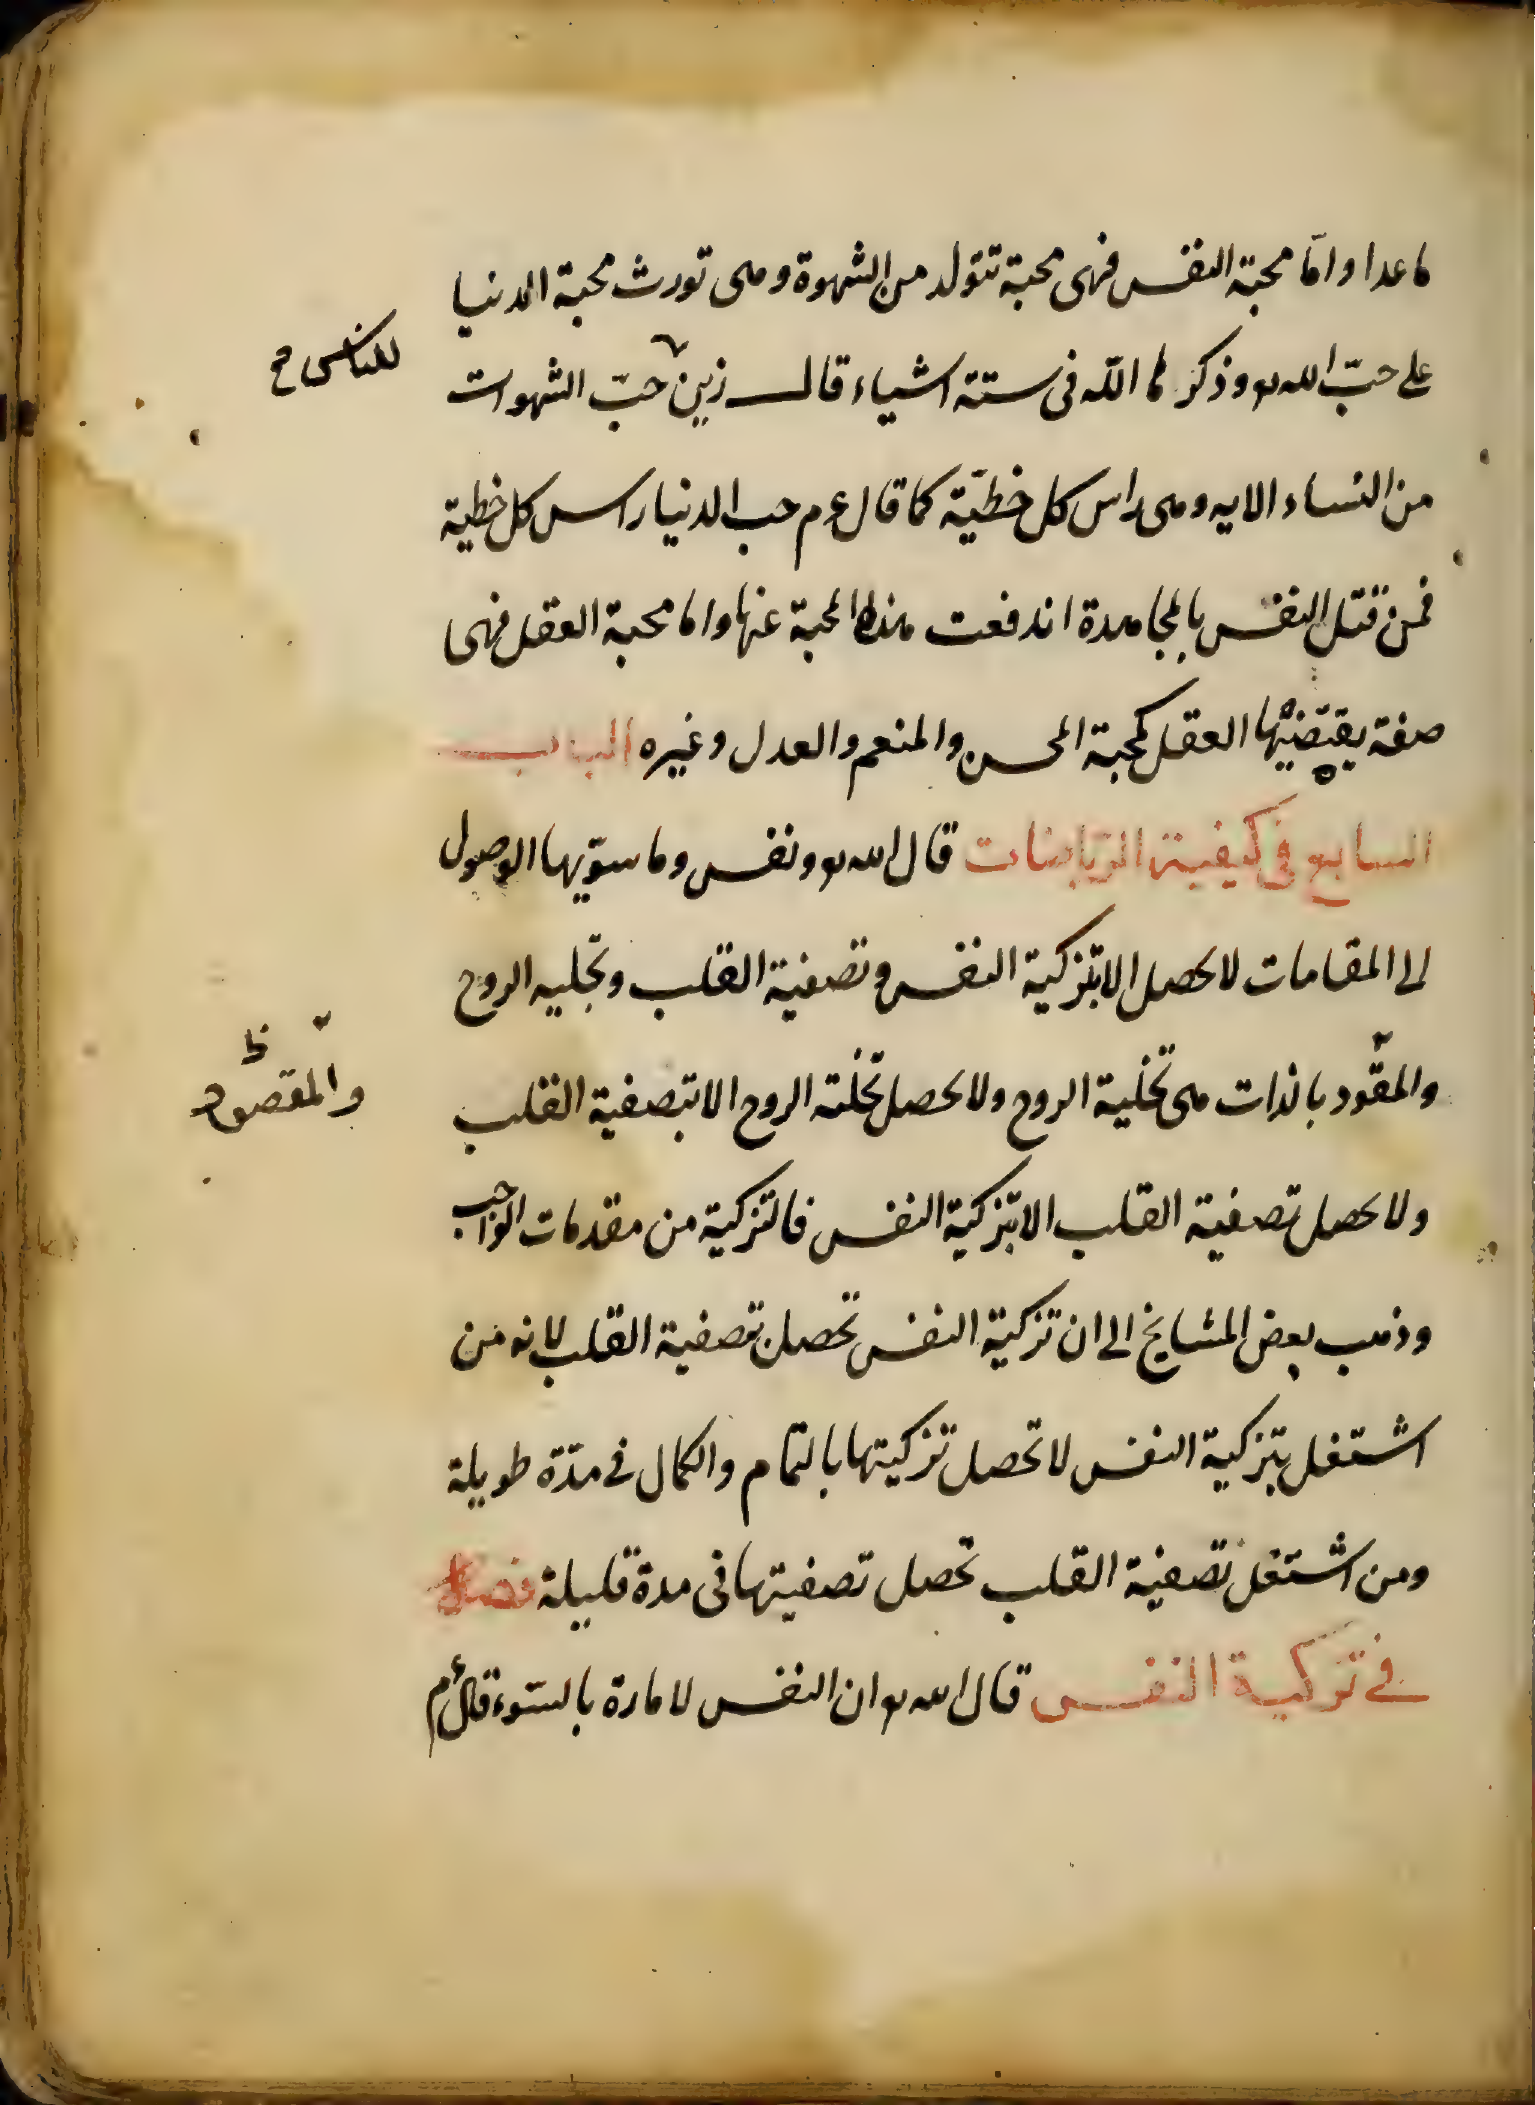 ما عدا واما محبة النفس فهى محبة تتولد من الشهوة وهى تورث محبة الدنيا
على حبّ الله تع وذكر لها الله فى ستة اشياء قال زين حبّ الشهوات
للناس صح
من النساء الايه وهى راس كل خطيّة كما قال عم حب الدنيا راس كل خطية
فمن قتل النفس بالمجاهدة اندفعت هذه المحبة عنها واما محبة العقل فهى
صفة يقتضيها العقل كمحبة المحسن والمنعم والعدل وغيره الباب
السابع فى كيفية الرياضات قال الله تع ونفس وما سوّيها الوصول
الى المقامات لا يحصل الا بتزكية النفس وتصفية القلب وتجليه الروح
والمقود بالذات هى تخلية الروح ولا يحصل تخلية الروح الا بتصفية القلب
والمقصود ظ
ولا يحصل تصفية القلب الا بتزكية النفس فالتزكية من مقدمات الواجب
وذهب بعض المشايخ الى ان تزكية النفس تحصل بتصفية القلب لانه من
اشتغل بتزكية النفس لا تحصل تزكيتها بالتمام والكمال فى مدّة طويلة
ومن اشتغل بتصفية القلب تحصل تصفيتها فى مدة قليلة فصل
فى تزكية النفس قال الله تع ان النفس لامارة بالسّوء قال عم